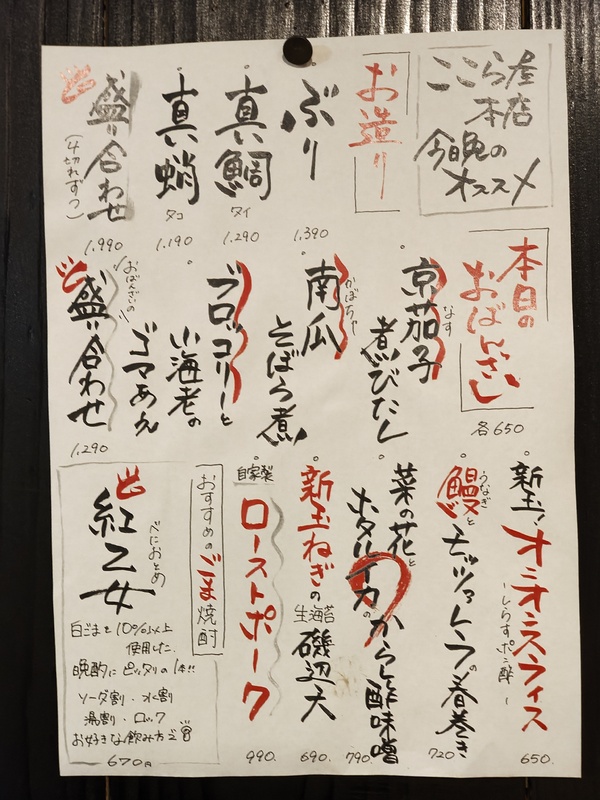 ここら屋
本店
今晩の
オススメ
お造り
ぶり
1,390
真鯛
タイ
1,290
真蛸
タコ
1,190
盛り合わせ
(4切れずつ)
1,990
本日の
おばんざい
各650
京茄子
なす
煮びたし
南瓜
かぼちゃ
そぼろ煮
ブロッコリーと
小海老の
ゴマあえ
おばんざいの
盛り合わせ
1,290
新玉
オニオンスライス
-しらすポン酢-
650.
鰻と
うなぎ
モッツァレラの
春巻き
720
菜の花と
ホタルイカの
からし酢味噌
790.
新玉ねぎの
生海苔
磯辺天
690.
自家製
ローストポーク
990.
おすすめのごま焼酎
紅乙女
べにおとめ
白ごまを10%以上
使用した、
晩酌にピッタリの1本!!
ソーダ割・水割
湯割・ロック
お好きな飲み方で
670円